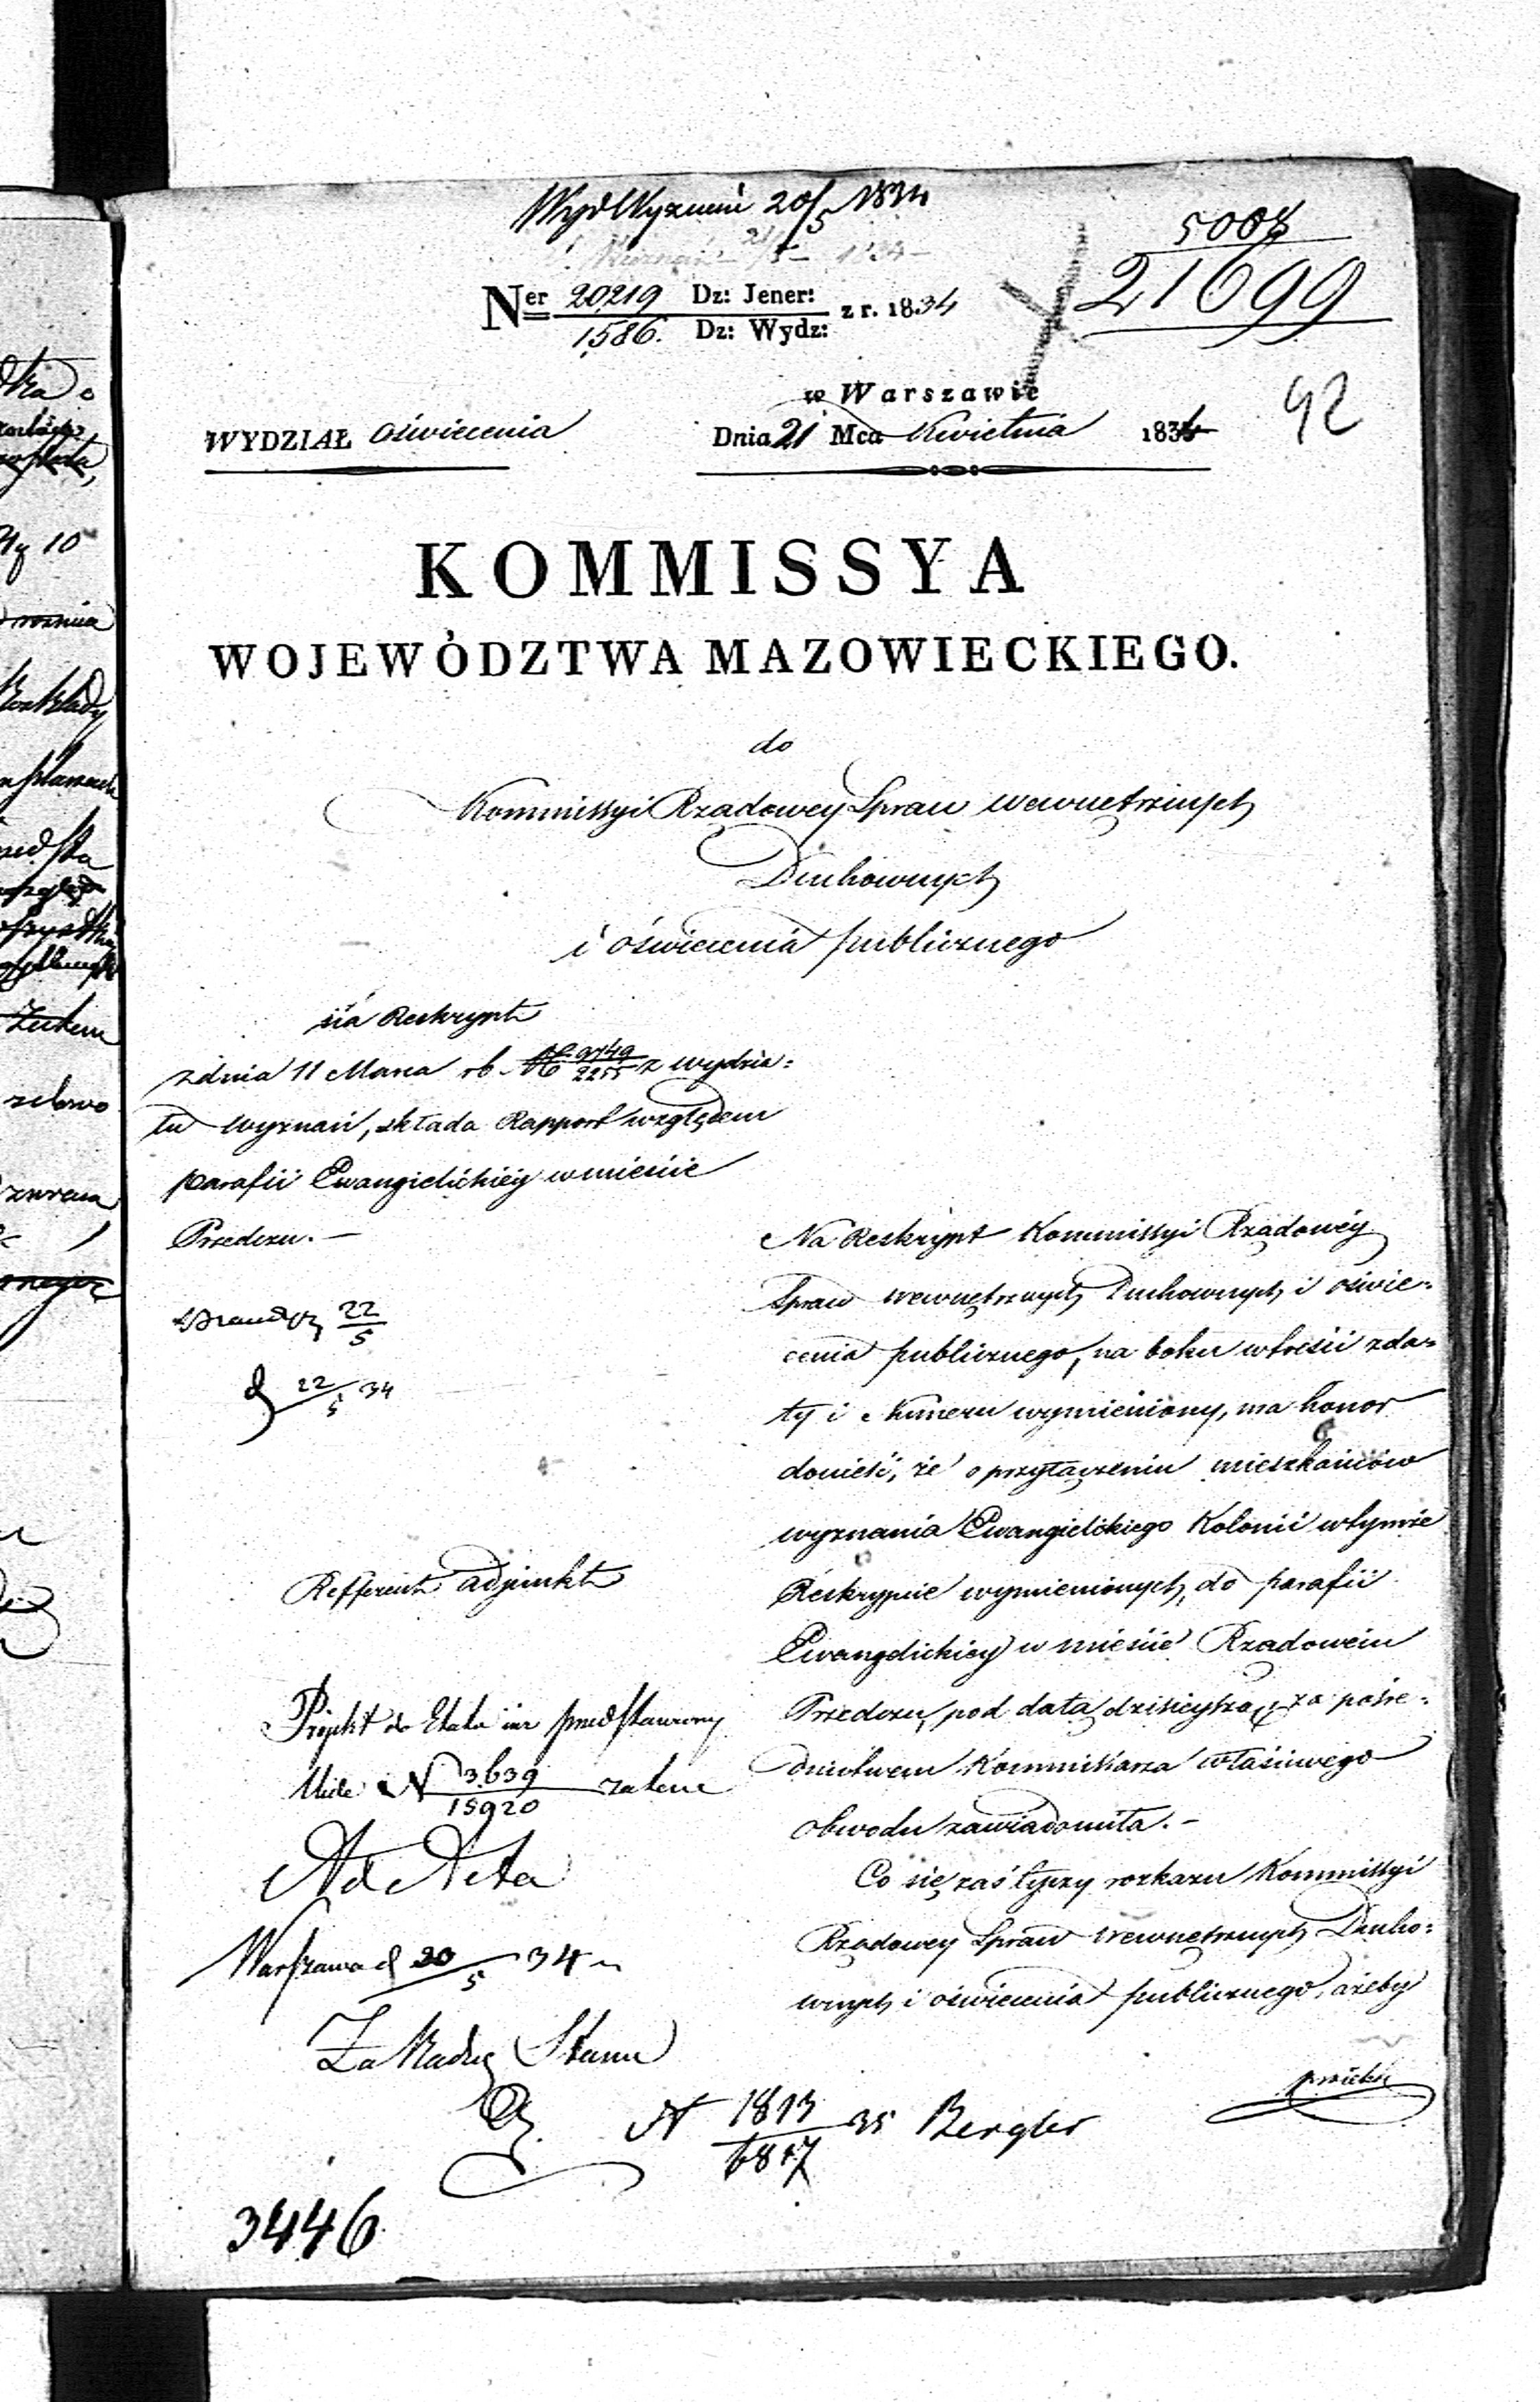 Wyd Wyznań 20/5 1834
5007
21699
Ner 20219 Dz: Jener: z r. 1834
1586. Dz: Wydz:
w Warszawie
WYDZIAŁ oświecenia
Dnia 21 Mca Kwietnia 1834
42
KOMMISSYA
WOJEWÓDZTWA MAZOWIECKIEGO.
do
Kommissyi Rządowey Spraw wewnętrznych
Duchownych
i oświecenia publicznego
na Reskrypt
z dnia 11 Marca rb. No 9749/2255 z wydzia=
łu wyznań, składa Rapport względem
parafii Ewangielickiey w mieście
Przedczu. —
22/5
22/5 34
Refferent adjunkt
Projekt do Etatu już przedstawiony
Vide N 3639/15920 zatem
Ad Acta
Warszawa d 20/5 34
Za Radcę Stanu
Na Reskrypt Kommissyi Rządowéy
Spraw wewnętrznych Duchownych i oświe=
cenia publicznego, na boku w treści z da=
ty i Numeru wymieniony, ma honor
donieść, że o przyłączeniu mieszkańców
wyznania Ewangielickiego Kolonii w tymże
Reskrypcie wymienionych, do parafii
Ewangelickiey w mieście Rządowém
Przedczu, pod datą dzisieyszą, za pośre=
dnictwem Kommissarza właściwego
obwodu zawiadomiła. —
Co się zaś tyczy rozkazu Kommissyi
Rządowey Spraw wewnętrznych Ducho=
wnych i oświecenia publicznego, ażeby
N 1813/6817 35 Bergler
3446